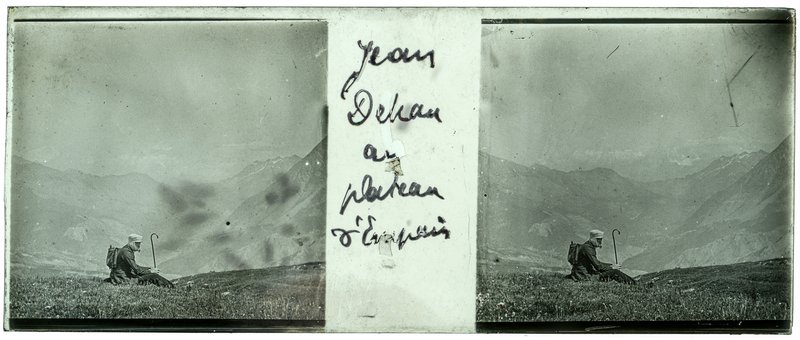 Jean
Dehan
au
plateau
d'Emparis